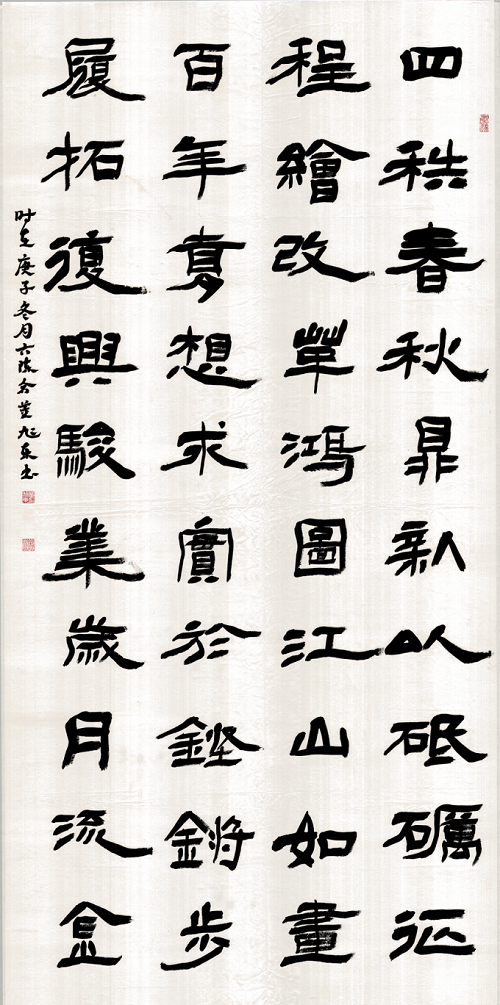 四秩春秋鼎新以砥礪征
程繪改革鴻圖江山如畫
百年夢想求實於鏗鏘步
履拓復興駿業歲月流金
时在庚子冬月旭东书